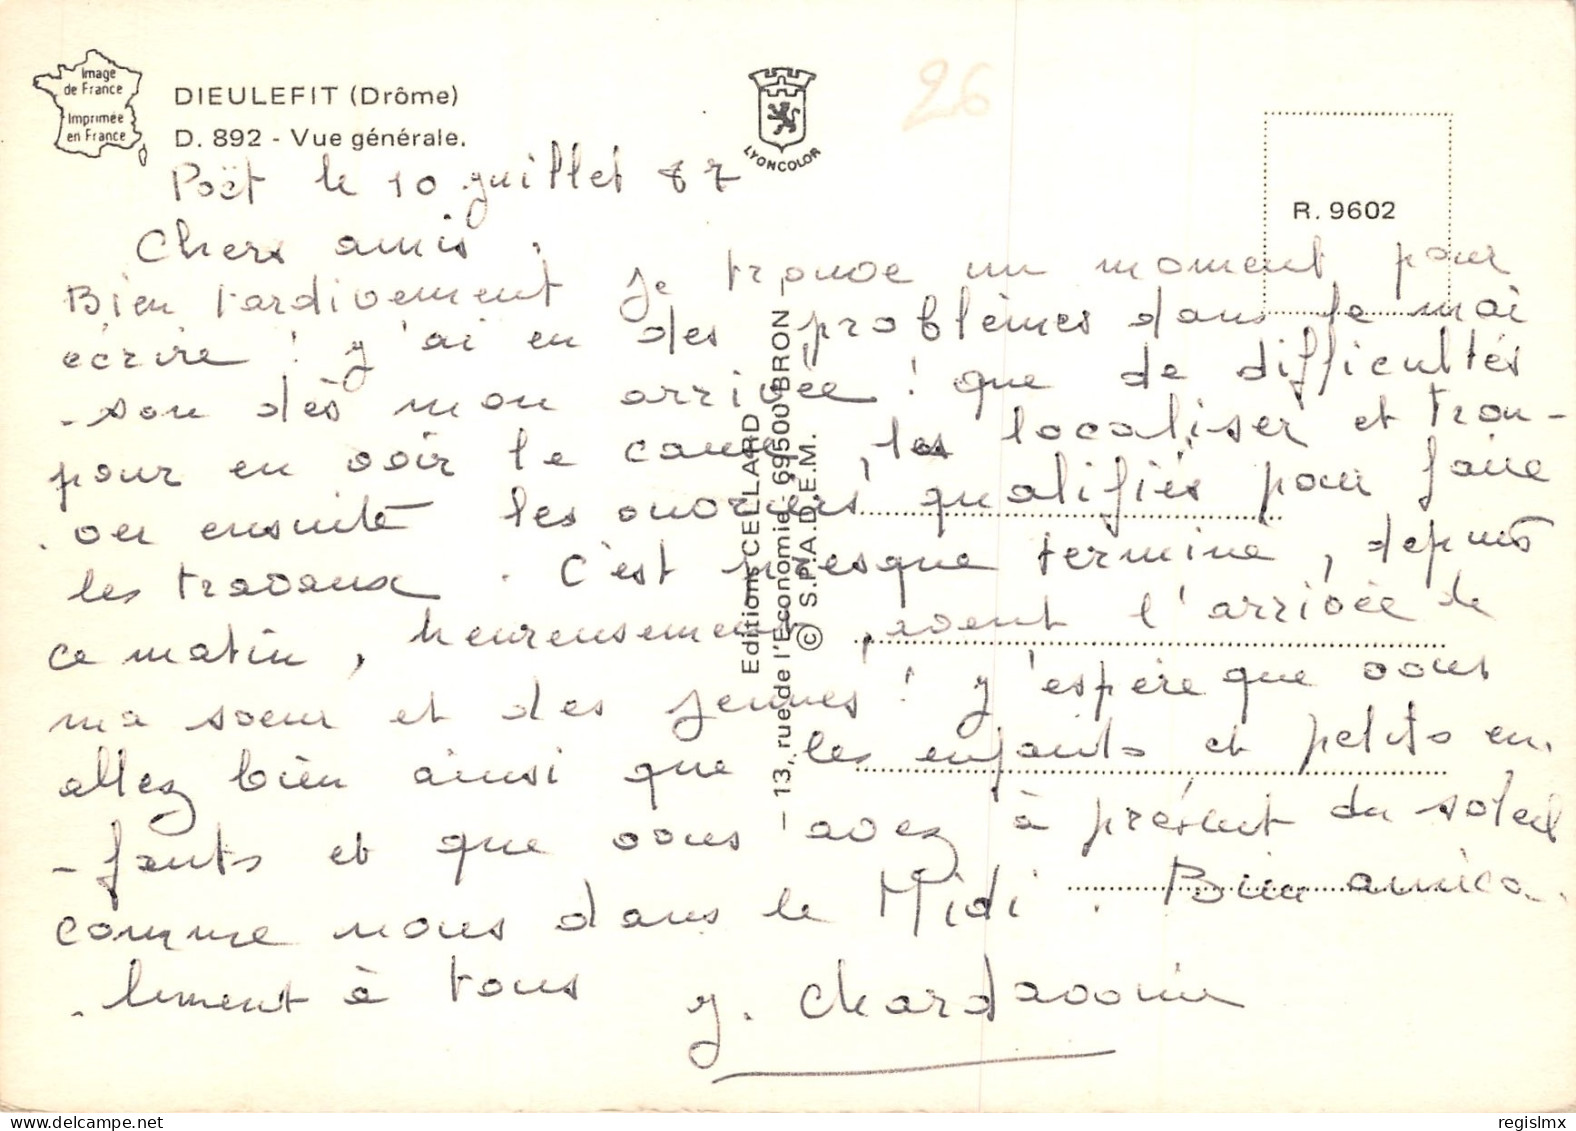 Image
de France
Imprimée
en France
DIEULEFIT (Drôme)
D. 892 - Vue générale.
LYONCOLOR
26
R. 9602
Poët le 10 juillet 87
Chers amis,
Bien tardivement je trouve un moment pour
écrire ! J'ai eu des problèmes dans la mai
-son dès mon arrivée ! que de difficultés
pour en voir la cause, les localiser et trou-
ver ensuite les ouvriers qualifiés pour faire
les travaux. C'est presque terminé, depuis
ce matin, heureusement, avant l'arrivée de
ma soeur et des jeunes ! J'espère que vous
allez bien ainsi que les enfants et petits en
-fants et que vous avez à présent du soleil
comme nous dans le Midi. Bien amica
-lement à tous
Y. Chardavoine
Editions CELLARD
— 13, rue de l'Economie, 69500 BRON —
© S.P.A.D.E.M.
regislmx